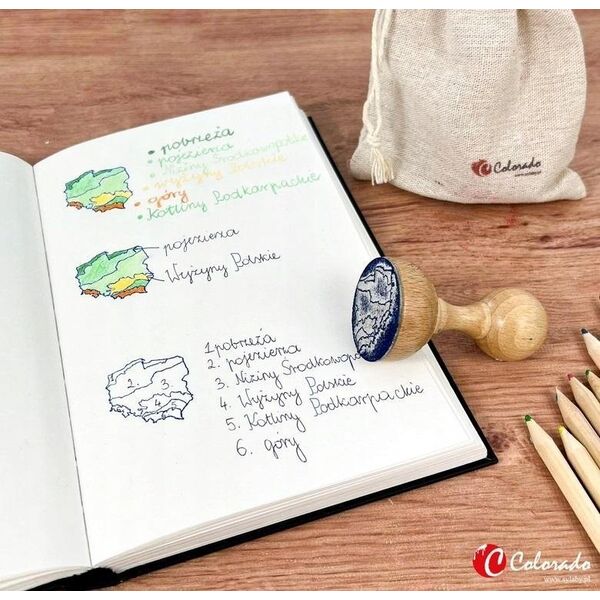 • pobrzeża
• pojezierza
• Niziny Środkowopolskie
• wyżyny Polskie
• góry
• Kotliny Podkarpackie
pojezierza
Wyżyny Polskie
1. pobrzeża
2. pojezierza
3. Niziny Środkowop
4. Wyżyny Polskie
5. Kotliny Podkarpackie
6. góry
2. 3.
4.
Colorado
www.sylaby.pl
Colorado
www.sylaby.pl